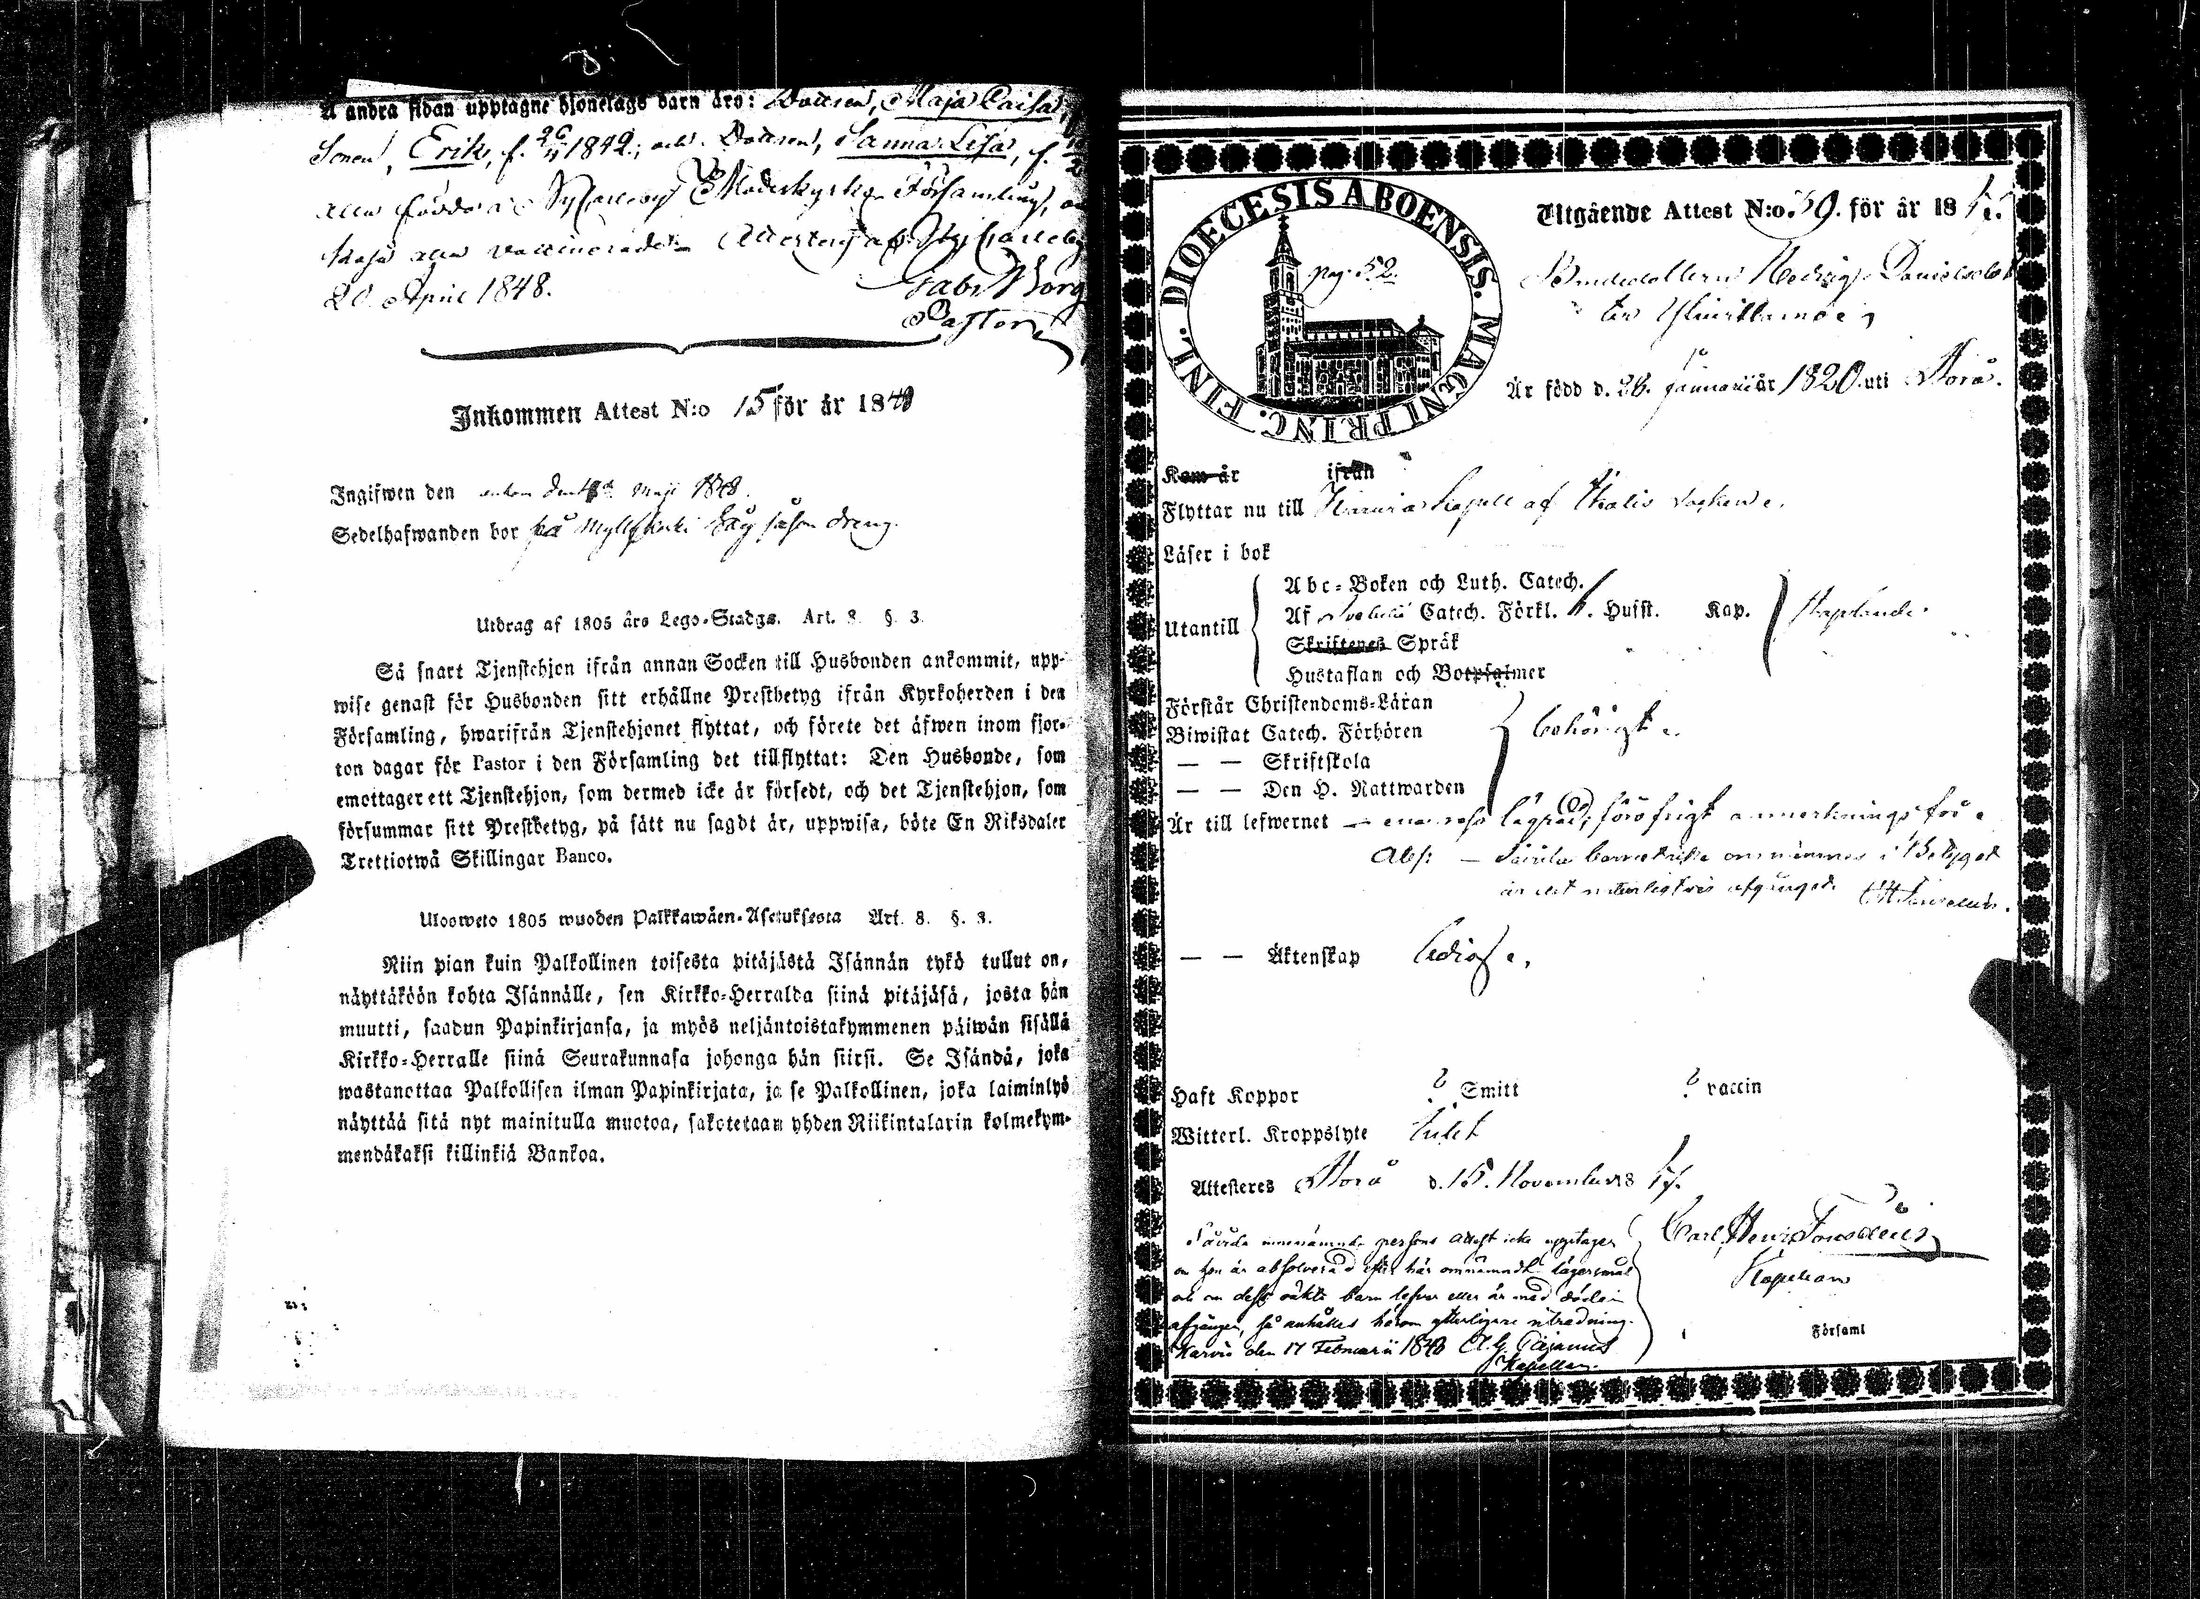 Å andra sidan upptagne hjonelags barn äro: Dottren, Maja Caisa,
Sonen, Erik, f. 26/11 1842; och Dottren, Sanna Lisa, f.
alla födda i Nycarleby Moderkyrko Församling,
alla vaccinerade. Attesteras af Nycarleby
20 April 1848.
Gabr. Borg
Pastor
Inkommen Attest N:o 15 för år 1848
Ingifwen den Maji 1848.
Sedelhafwanden bor på dreng.
Utdrag af 1805 års Lego-Stadga. Art. 8. §. 3.
Så snart Tjenstehjon ifrån annan Socken till Husbonden ankommit, upp-
wise genast för Husbonden sitt erhållne Prestbetyg ifrån Kyrkoherden i den
Församling, hwarifrån Tjenstehjonet flyttat, och förete det äfwen inom fjor-
ton dagar för Pastor i den Församling det tillflyttat: Den Husbonde, som
emottager ett Tjenstehjon, som dermed icke är försedt, och det Tjenstehjon, som
försummar sitt Prestbetyg, på sätt nu sagdt är, uppwisa, böte En Riksdaler
Trettiotwå Skillingar Banco.
Ulosweto 1805 wuoden Palkkawäen-Asetuksesta Art. 8. §. 3.
Niin pian kuin Palkollinen toisesta pitäjästä Isännän tykö tullut on,
näyttäköön kohta Isännälle, sen Kirkko-Herralda siinä pitäjäsä, josta hän
muutti, saadun Papinkirjansa, ja myös neljäntoistakymmenen päiwän sisällä
Kirkko-Herralle siinä Seurakunnasa johonga hän siirsi. Se Isändä, joka
wastanottaa Palkollisen ilman Papinkirjata, ja se Palkollinen, joka laiminlyö
näyttää sitä nyt mainitulla muotoa, sakotetaan yhden Riikintalarin kolmekym-
mendäkaksi killinkiä Bankoa.
DIOECESIS ABOENSIS. MAGNI PRINC. FINL.
pag. 52.
Utgående Attest N:o 39. för år 18
Bondedottern Hedvig Danielsdot
ter
Är född d. 26. Januarii år 1820. uti Storå.
Kom år ifrån
Flyttar nu till Kapell af socken.
Läser i bok
Utantill
Abc-Boken och Luth. Catech.
Af Svebelii Catech. Förkl. Husst. Kap.
Skriftenes Språk
Hustaflan och Botpsalmer
Förstår Christendoms-Läran
Biwistat Catech. Förhören
— — Skriftskola
— — Den H. Nattwarden
behörigt.
Är till lefwernet — lägrad, föröfrigt anmärkningsfri.
Obs: — Såvida omnämnes i Betyget
är det naturligtvis afgånget.
— — Äktenskap ledig.
Haft Koppor ? Smitt ? vaccin
Witterl. Kroppslyte intet
Attesteres Storå d. 15. Novembris 47.
Carl Henr.
Kapellan
Församl
Såvida innenämnde persons attest icke upptager
om hon är absolverad efter här omnämndt lägersmål
och om dess oäkta barn lefver eller är med döden
afgånget, så anhålles härom ytterligare utredning.
Karvia den 17 Februarii 1848
Kapellan.